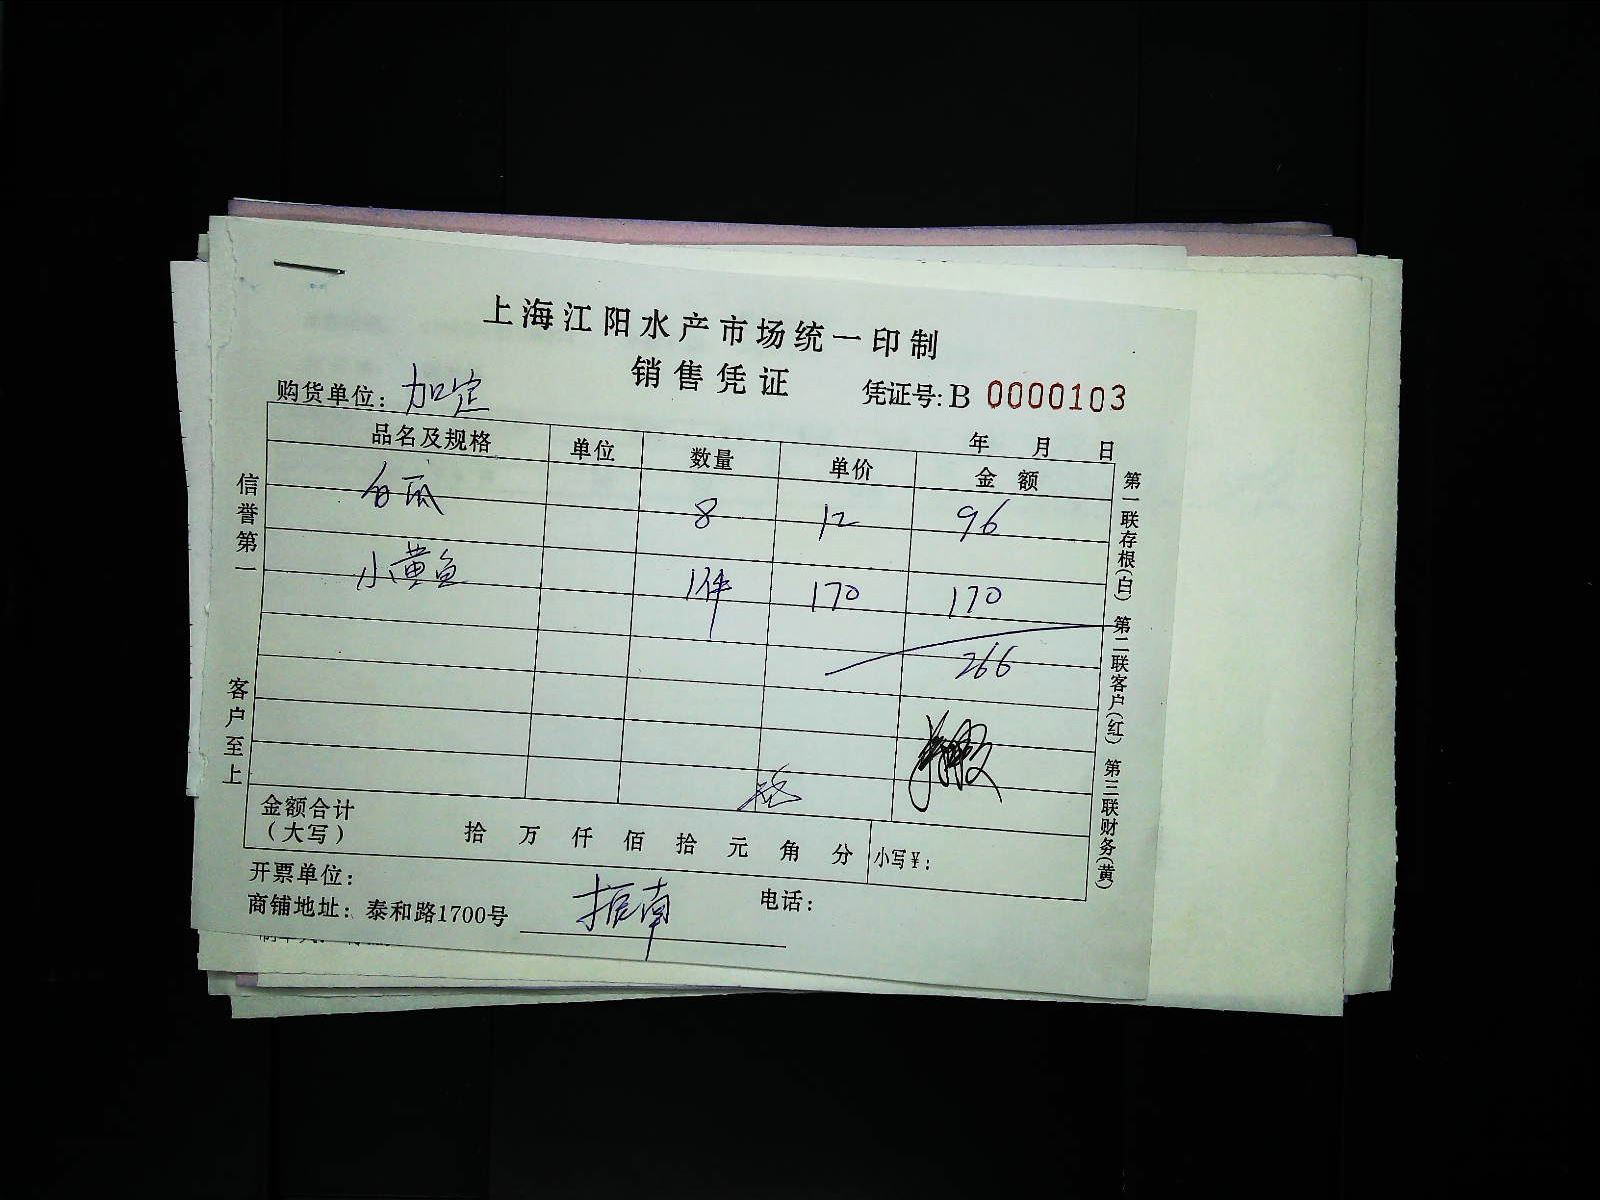 上海江阳水产市场统一印制
销售凭证
购货单位：加定
凭证号: B 0000103
年 月 日
品名及规格 单位 数量 单价 金额
白瓜 8 12 96
小黄鱼 1件 170 170
266
金额合计（大写） 拾 万 仟 佰 拾 元 角 分 小写¥：
开票单位：
商铺地址：泰和路1700号 电话：
信誉第一 客户至上
第一联存根(白) 第二联客户(红) 第三联财务(黄)